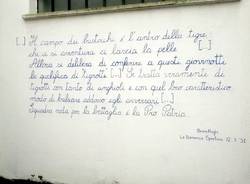 [...] Il campo dei bustocchi è l'antro della tigre,
chi ci si avventura ci lascia la pelle [...]
Allora si delibera di conferire a questi giovanotti
la qualifica di tigrotti [...] Si tratta veramente di
tigrotti con tanto di unghioli e con quel loro caratteristico
modo di balzare addosso agli avversari. [...]
Squadra nata per la battaglia è la Pro Patria.
La Domenica Sportiva